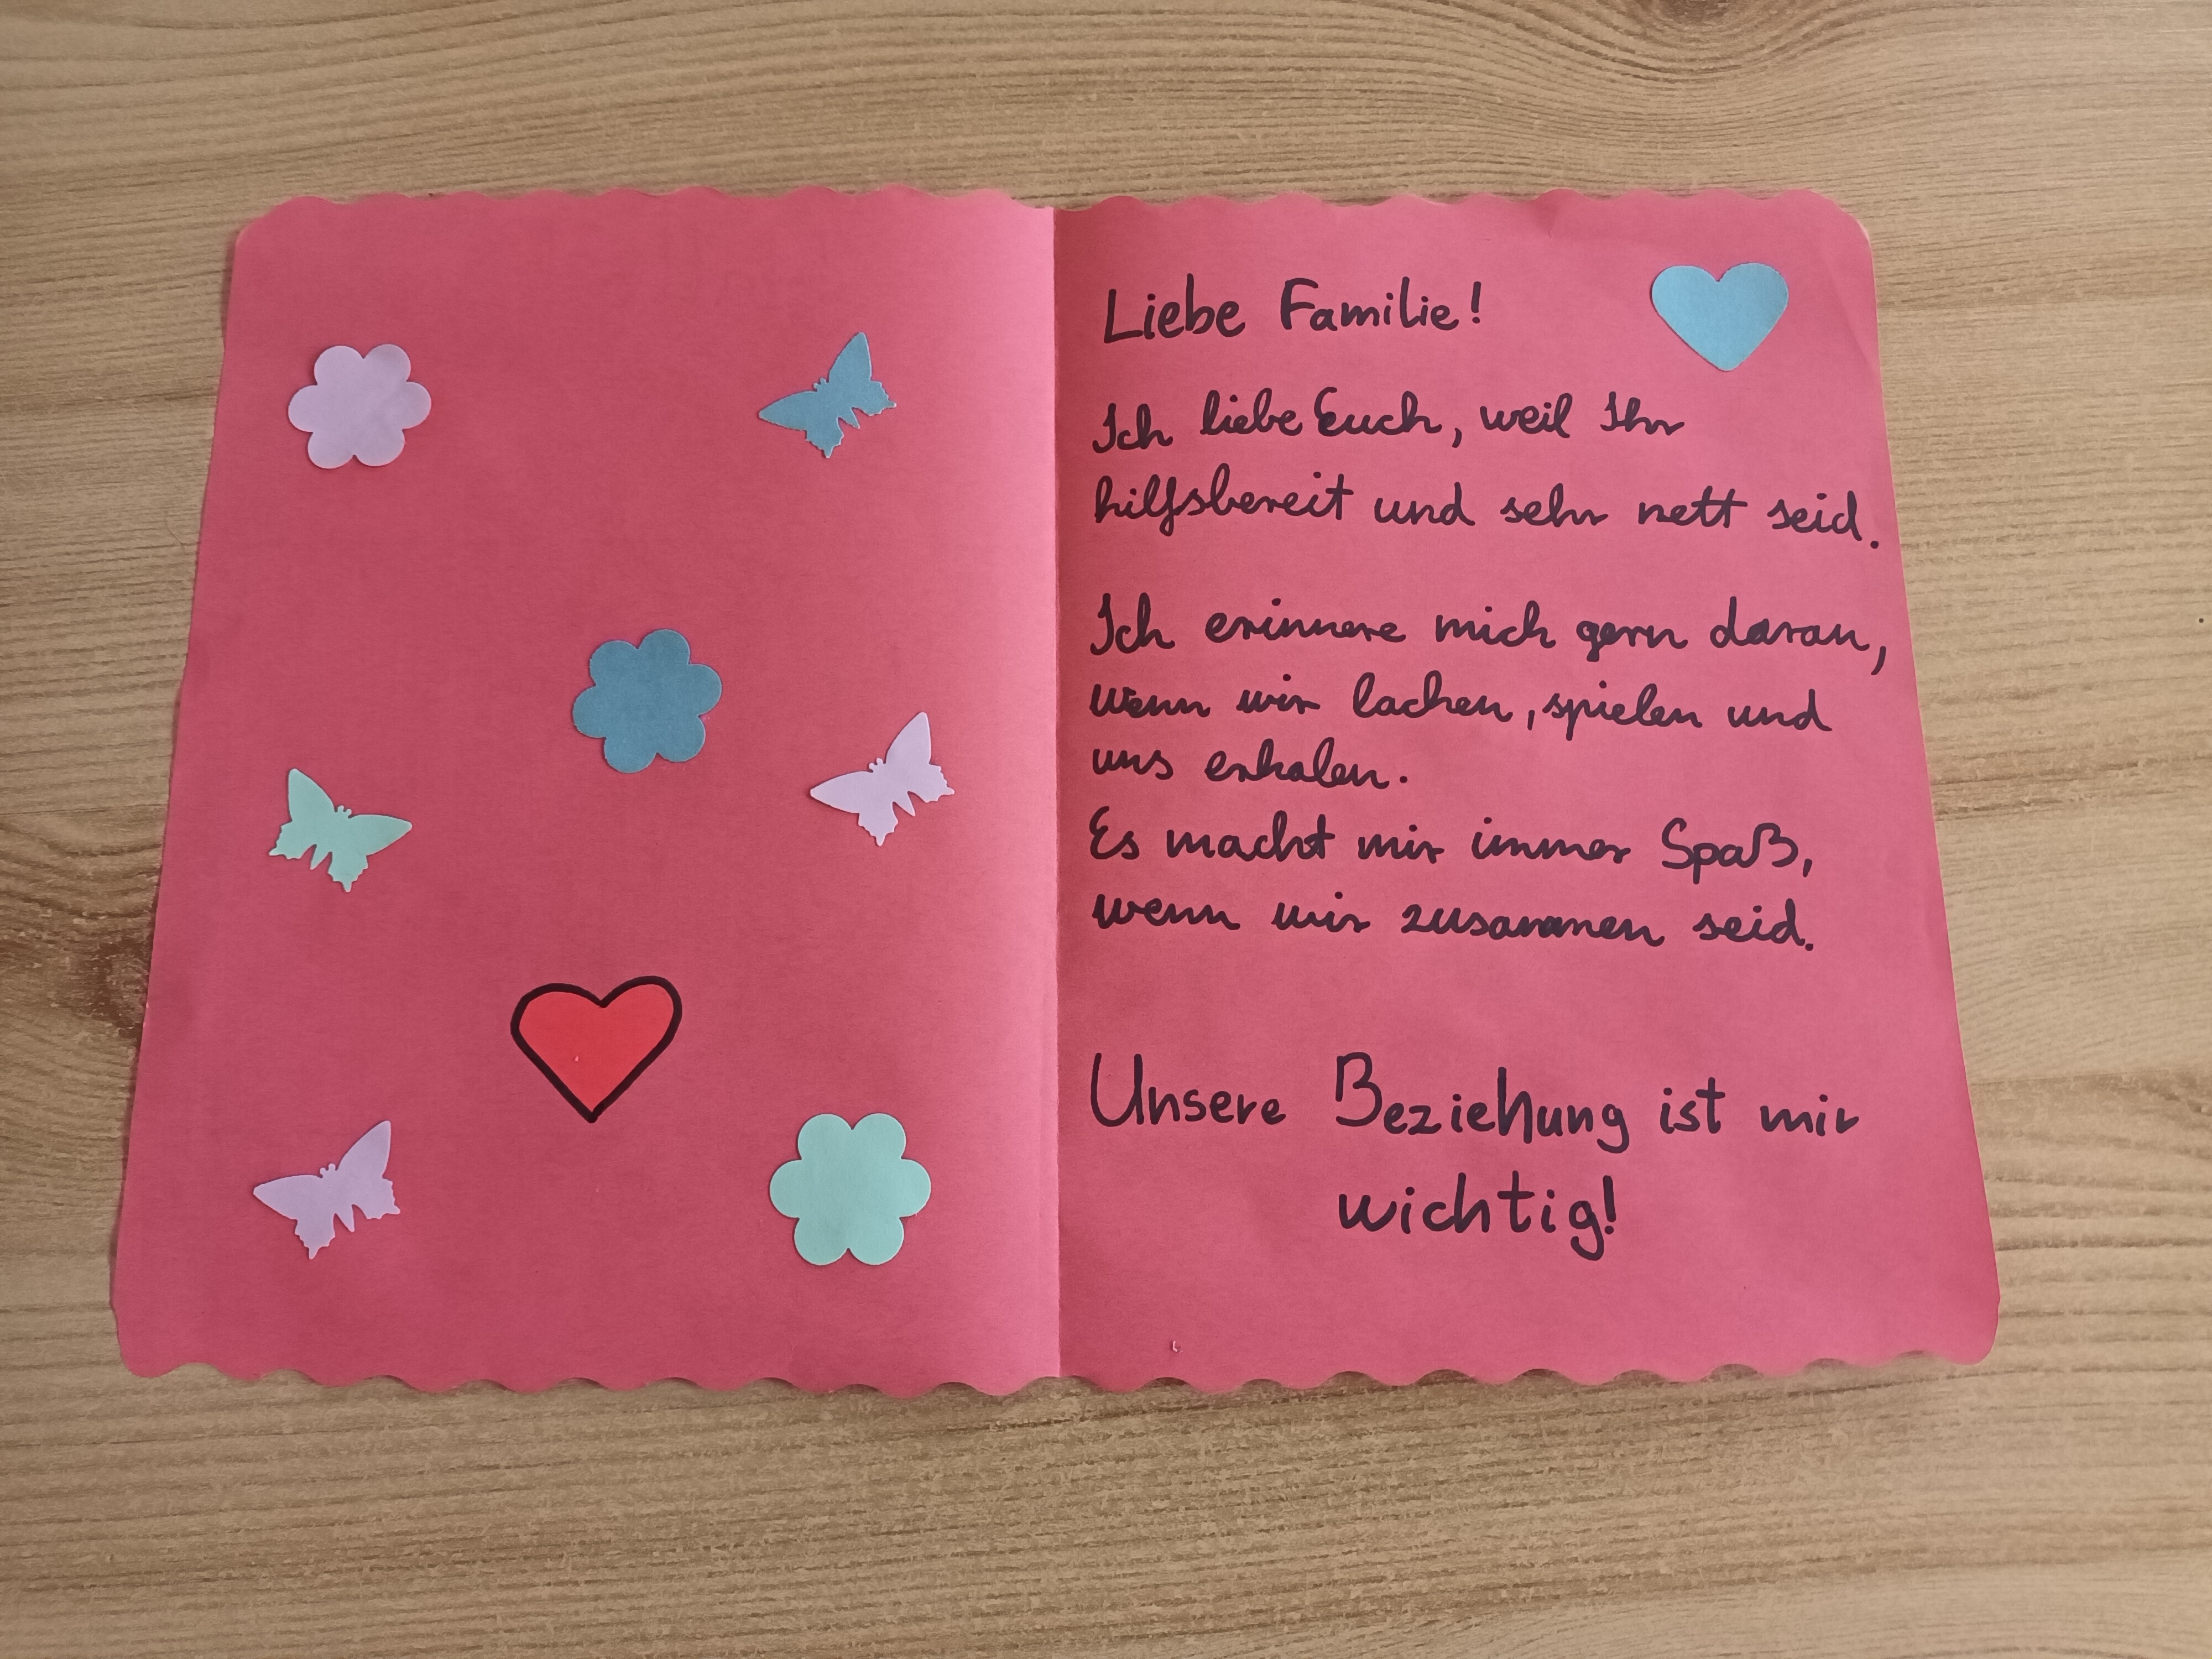 Liebe Familie!
Ich liebe Euch, weil Ihr
hilfsbereit und sehr nett seid.
Ich erinnere mich gern daran,
wenn wir lachen, spielen und
uns erholen.
Es macht mir immer Spaß,
wenn wir zusammen seid.
Unsere Beziehung ist mir
wichtig!